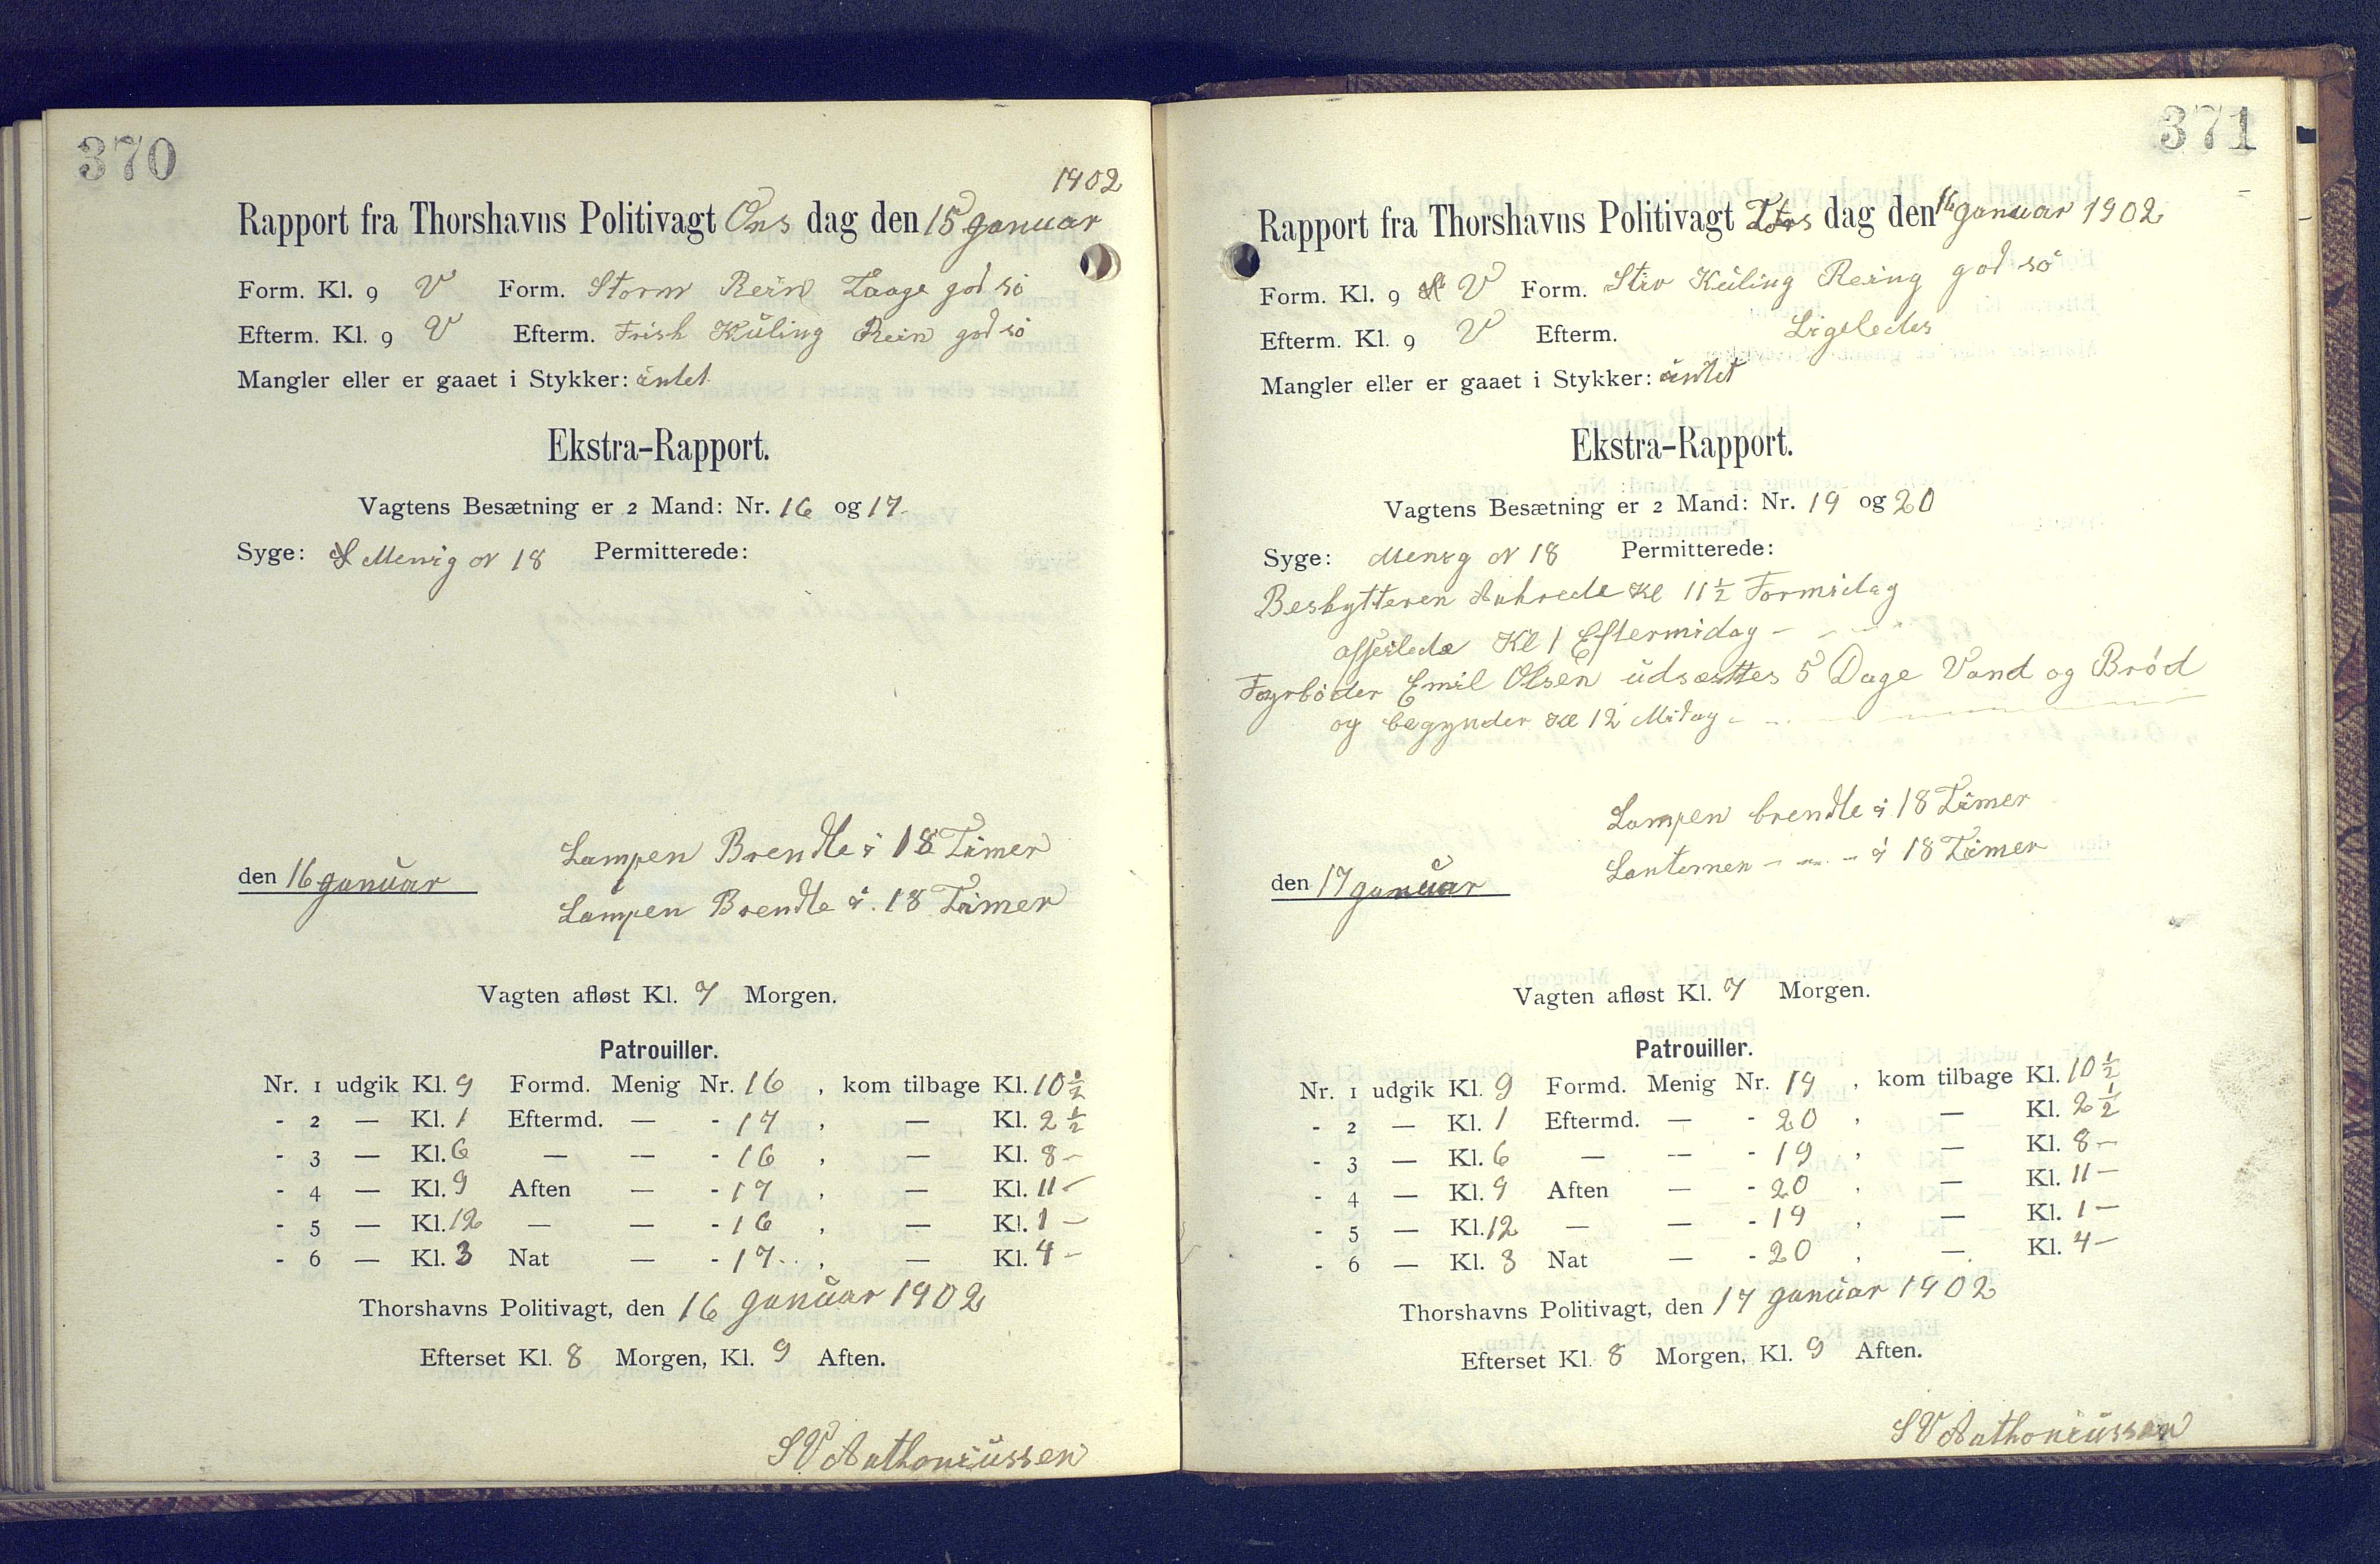 370
1902
Rapport fra Thorshavns Politivagt Ons dag den 15 Januar
Form. Kl. 9 V Form. Storm Rein Taage god sö
Efterm. Kl. 9 V Efterm. Frish Küling Rein god sö
Mangler eller er gaaet i Stykker: intet
Ekstra-Rapport.
Vagtens Besætning er 2 Mand: Nr. 16 og 17
Syge: Menig N 18 Permitterede:
Lampen Brendte i 18 Timer
den 16 Januar
Lampen Brendte i 18 Timer
Vagten afløst Kl. 7 Morgen.
Patrouiller.
Nr. 1 udgik Kl. 9 Formd. Menig Nr. 16 , kom tilbage Kl. 10 1/2
- 2 — Kl. 1 Eftermd. — - 17 , — Kl. 2 1/2
- 3 — Kl. 6 — — - 16 , — Kl. 8 -
- 4 — Kl. 9 Aften — - 17 , — Kl. 11 -
- 5 — Kl. 12 — — - 16 , — Kl. 1 -
- 6 — Kl. 3 Nat — - 17 , — Kl. 4 -
Thorshavns Politivagt, den 16 Januar 1902
Efterset Kl. 8 Morgen, Kl. 9 Aften.
SV Anthoniussen
371
Rapport fra Thorshavns Politivagt Tors dag den 16 Januar 1902
Form. Kl. 9 V Form. Stiv Küling Reing god sö
Efterm. Kl. 9 V Efterm. Ligeledes
Mangler eller er gaaet i Stykker: intet
Ekstra-Rapport.
Vagtens Besætning er 2 Mand: Nr. 19 og 20
Syge: Menig N 18 Permitterede:
Beskytteren Ankrede Kl 11 1/2 Formidag
afseilede Kl 1 Eftermidag -
Fayrböder Emil Olsen udsættes 5 Dage Vand og Bröd
og begynder Kl 12 Midag -
Lampen brendte i 18 Timer
Lanternen - - - i 18 Timer
den 17 Januar
Vagten afløst Kl. 7 Morgen.
Patrouiller.
Nr. 1 udgik Kl. 9 Formd. Menig Nr. 19 , kom tilbage Kl. 10 1/2
- 2 — Kl. 1 Eftermd. — - 20 , — Kl. 2 1/2
- 3 — Kl. 6 — — - 19 , — Kl. 8 -
- 4 — Kl. 9 Aften — - 20 , — Kl. 11 -
- 5 — Kl. 12 — — - 19 , — Kl. 1 -
- 6 — Kl. 3 Nat — - 20 , — Kl. 4 -
Thorshavns Politivagt, den 17 Januar 1902
Efterset Kl. 8 Morgen, Kl. 9 Aften.
SV Anthoniussen